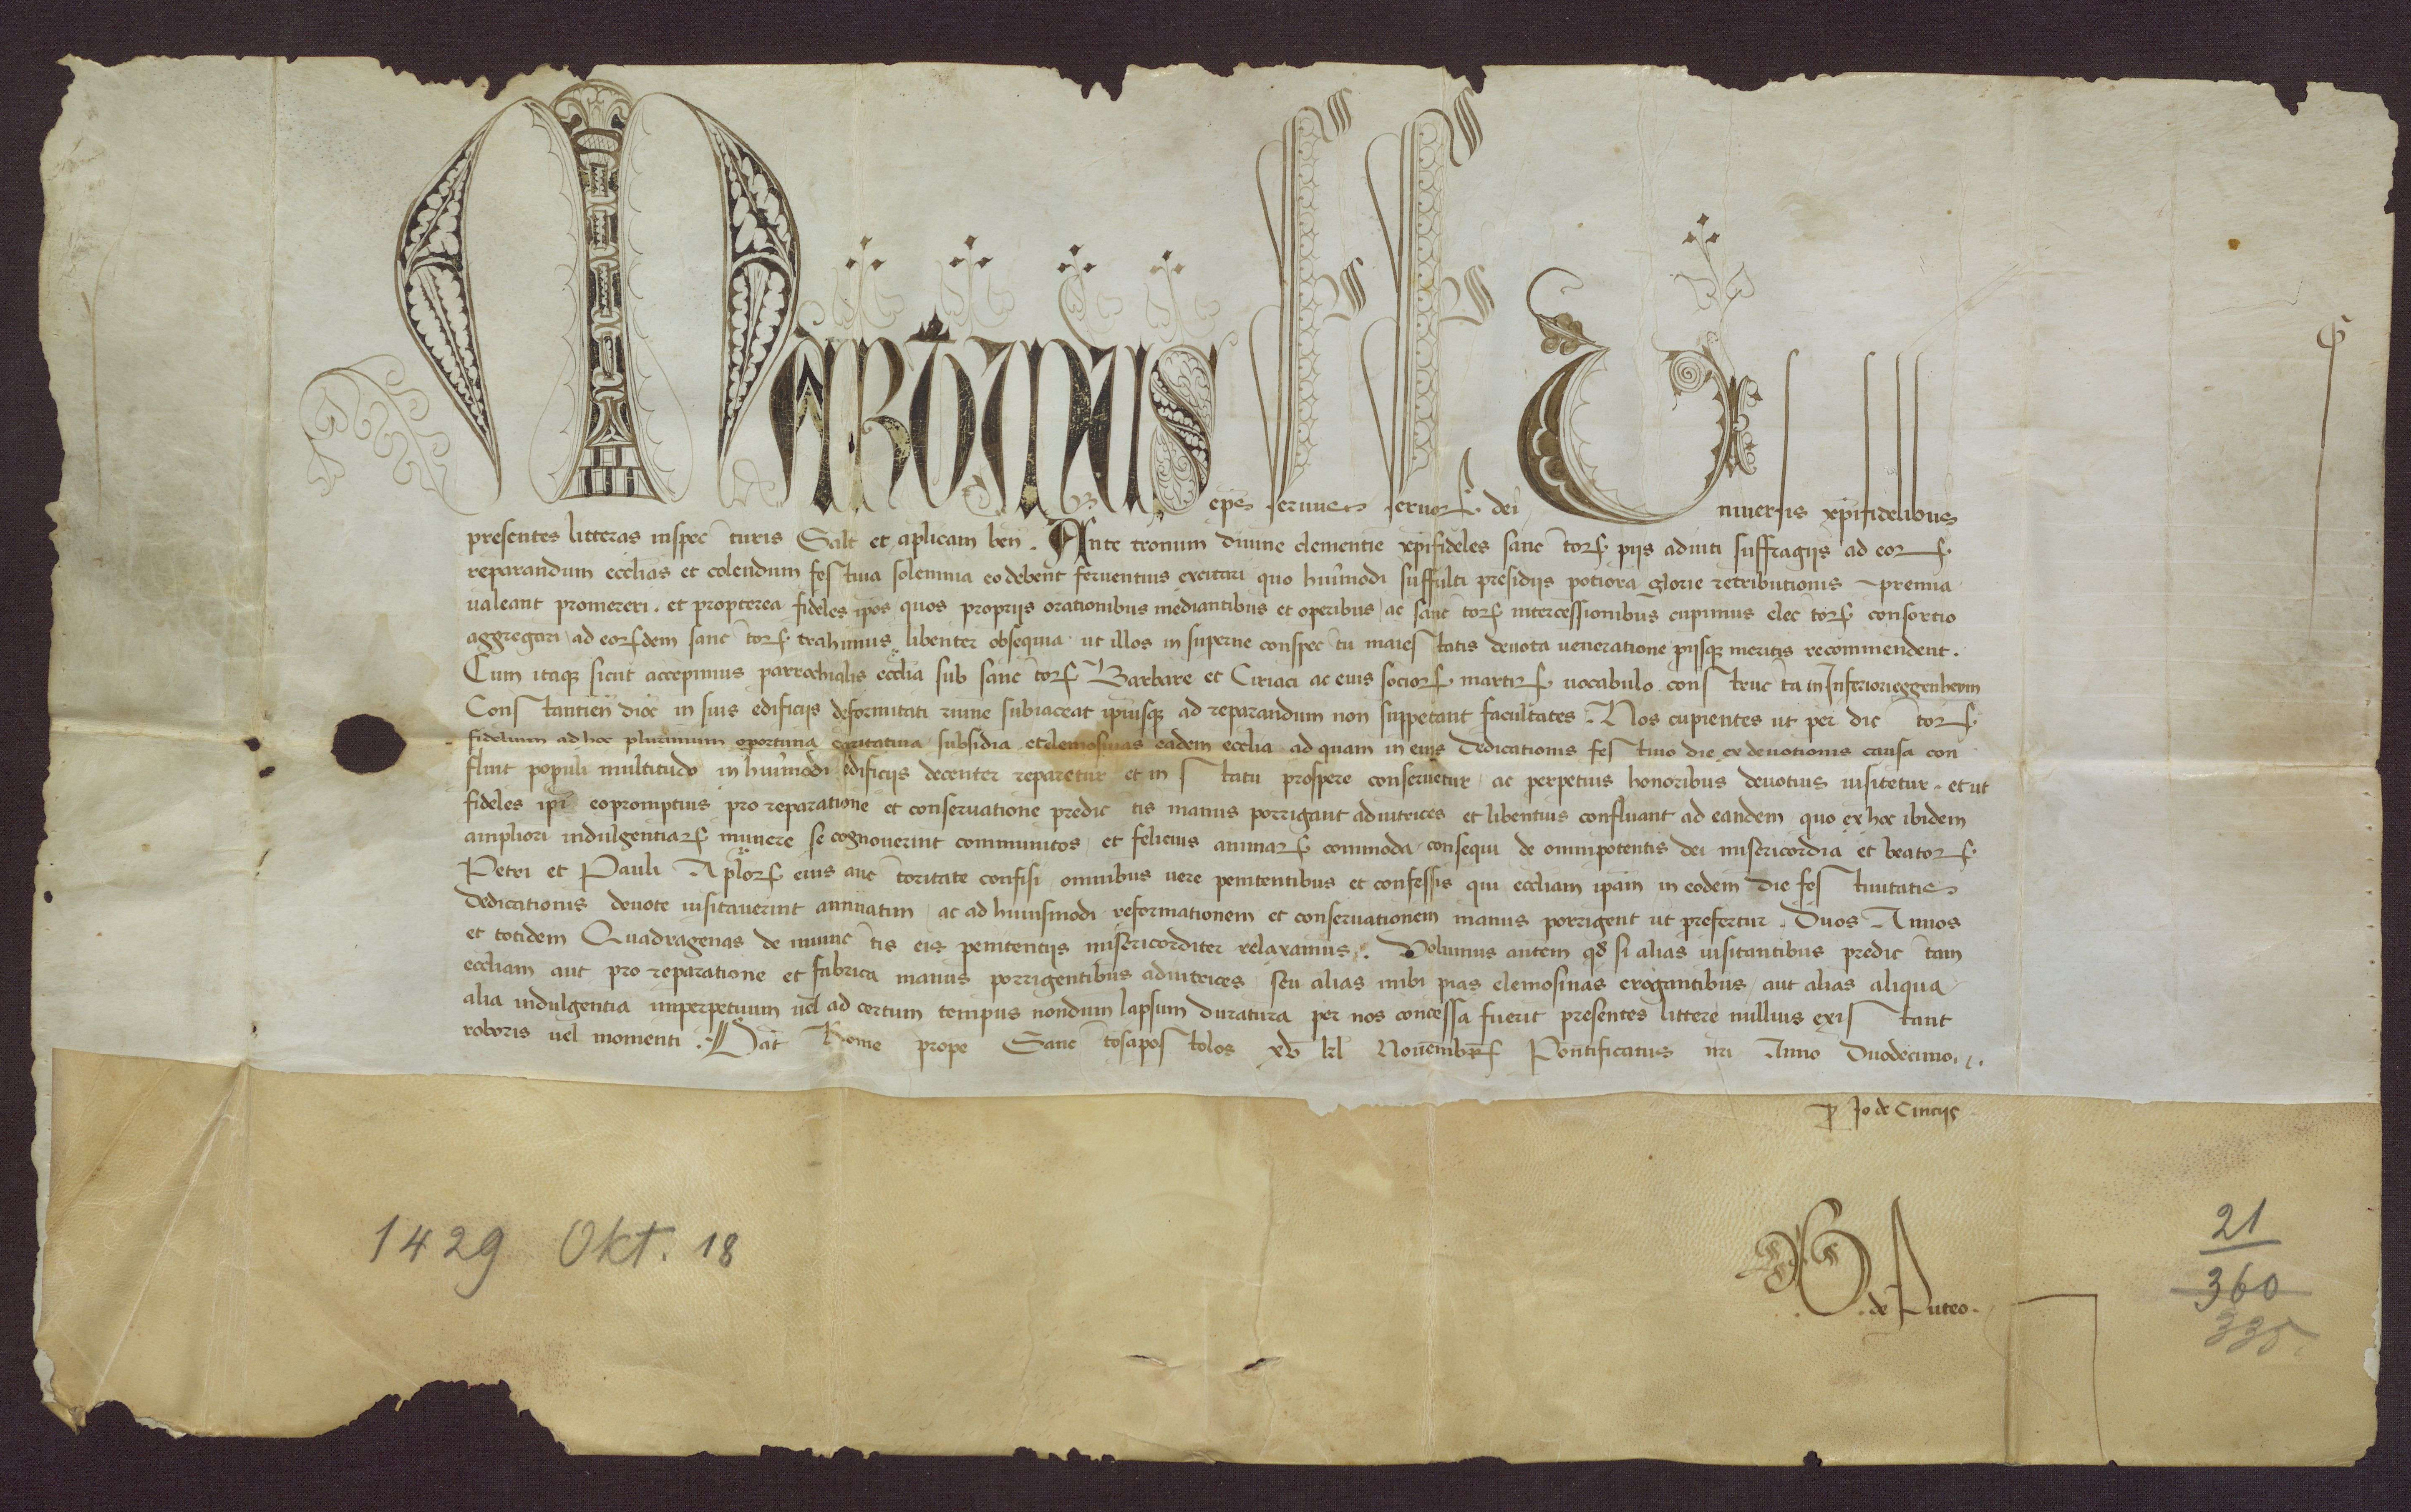 MARTINUS epˢ seruus seruoꝝ dei Uniuersis xp̄ifidelibus
presentes litteras inspecturis Salt̄ et aplicam ben̄. Ante tronum diuine clementie xp̄ifideles sanctoꝝ piis adiuti suffragiis ad eoꝝ
reparandum ecclias et colendum festiua solennia eo debent feruentius excitari quo huīmodi suffulti presidiis potiora glorie retributionis premia
ualeant promereri. et propterea fideles ip̄os quos propriis orationibus mediantibus et operibus ac sanctoꝝ intercessionibus cupimus electoꝝ consortio
aggregari ad eoꝝdem sanctoꝝ trahimus libenter obsequia ut illos in superne conspectu maiestatis deuota ueneratione piisqꝫ meritis recommendent.
Cum itaqꝫ sicut accepimus parrochialis ecclia sub sanctoꝝ Barbare et Ciriaci ac eius socioꝝ martirꝝ uocabulo constructa in Inferioreggenheim
Constantien̄ dioc̄ in suis edificiis deformitati ruine subiaceat ipiusqꝫ ad reparandum non suppetant facultates. Nos cupientes ut per dictoꝝ
fidelium ad hoc plurimum oportuna caritatiua subsidia et elemosinas eadem ecclia ad quam in eius dedicationis festiuo die ex deuotionis causa con
fluit populi multitudo in huīmodi edificiis decenter reparetur et in statu prospere conseruetur ac perpetuis honoribus deuotius uisitetur. et ut
fideles ip̄i eo promptius pro reparatione et conseruatione predictis manus porrigant adiutrices et libentius confluant ad eandem quo ex hoc ibidem
ampliori indulgentiaꝝ munere se cognouerint communitos et felicius animaꝝ commoda consequi de omnipotentis dei misericordia et beatoꝝ
Petri et Pauli Aploꝝ eius auctoritate confisi omnibus uere penitentibus et confessis qui eccliam ip̄am in eodem die festiuitatis
dedicationis deuote uisitauerint annuatim ac ad huiusmodi reformationem et conseruationem manus porrigent ut prefertur. Duos Annos
et totidem Quadragenas de iniunctis eis penitentiis misericorditer relaxamus. Volumus autem qd̄ si alias uisitantibus predictam
eccliam aut pro reparatione et fabrica manus porrigentibus adiutrices seu alias inibi pias elemosinas erogantibus aut alias aliqua
alia indulgentia imperpetuum uel ad certum tempus nondum lapsum duratura per nos concessa fuerit presentes littere nullius existant
roboris uel momenti. Dat̄ Rome prope Sanctosapostolos xv kl̄ Nouembrꝝ Pontificatus nr̄i Anno Duodecimo.
ꝑ Jo de Cinciis
de Puteo.
1429 Okt. 18
21
360
335